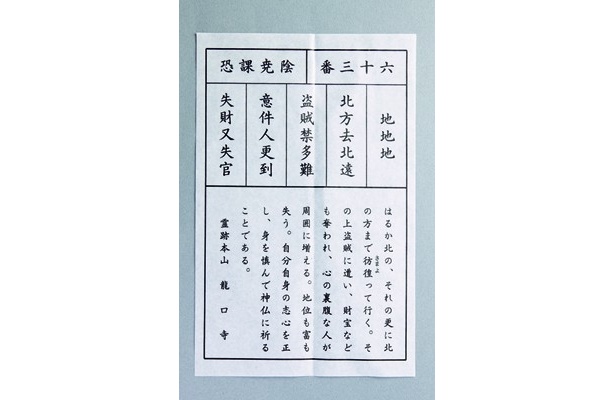 六十三番
陰尭課恐
地地地
北方去北遠
盗賊禁多難
意件人更到
失財又失官
はるか北の、それの更に北
の方まで彷徨って行く。そ
の上盗賊に遭い、財宝など
も奪われ、心の裏腹な人が
周囲に増える。地位も富も
失う。自分自身の志心を正
し、身を慎んで神仏に祈る
ことである。
霊跡本山 龍口寺